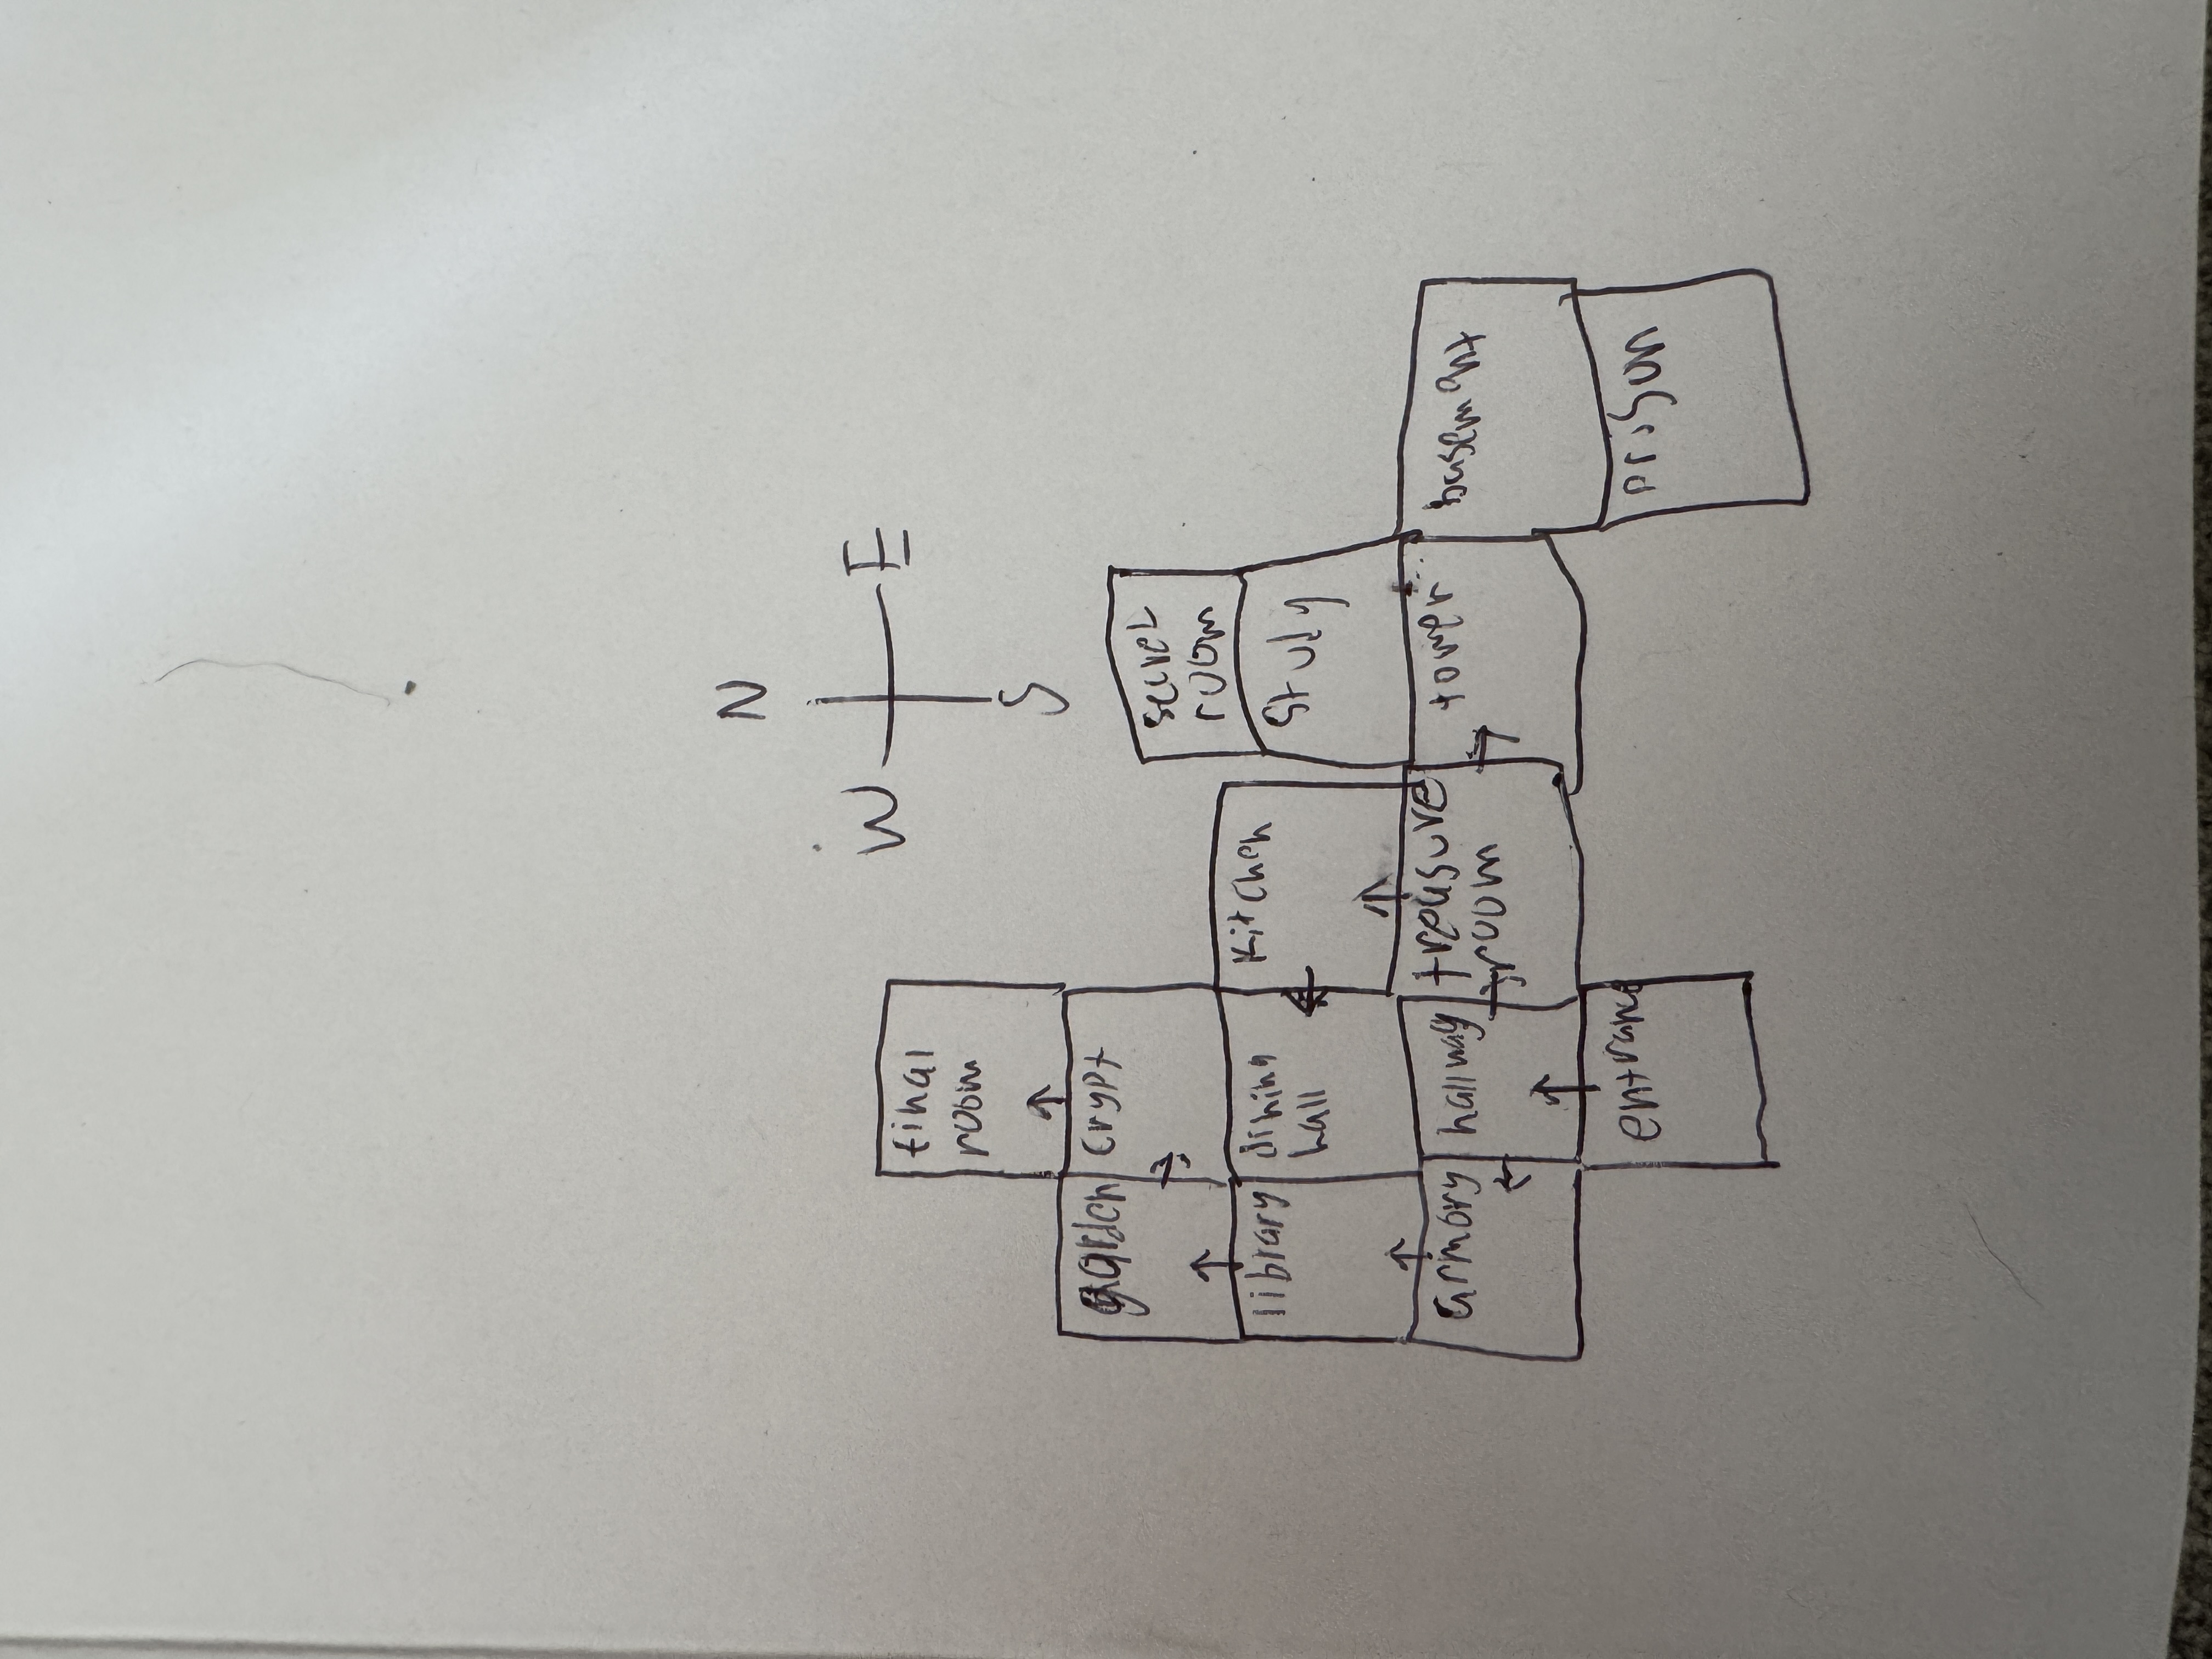 N
W E
S
final
room
garden
crypt
secret
room
library
dining
hall
kitchen
study
armory
hallway
treasure
room
tower
basement
entrance
prison